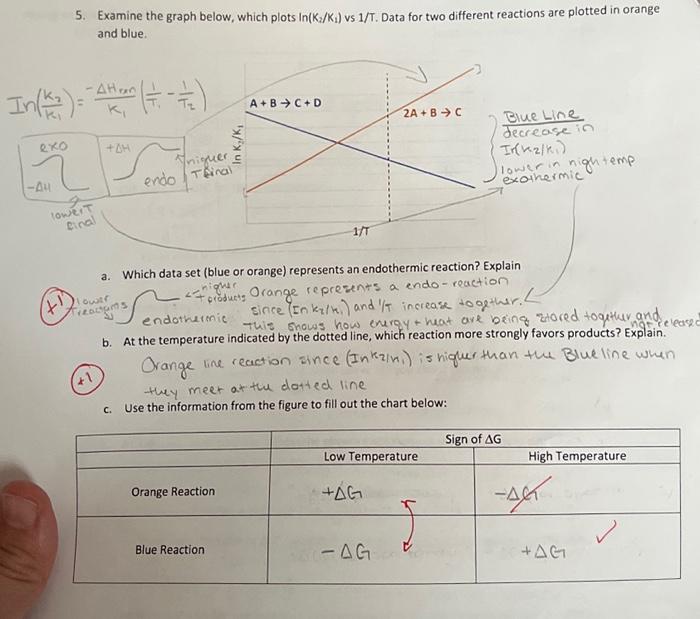 5. Examine the graph below, which plots ln(K₂/K₁) vs 1/T. Data for two different reactions are plotted in orange
and blue.
In(K₂/K₁) = -ΔHrxn/K₁ (1/T₁ - 1/T₂)
exo
-ΔH
lower T
final
+ΔH
endo
higher
T final
ln K₂/K₁
A + B → C + D
2A + B → C
1/T
Blue Line
decrease in
In(K2/K1)
lower in high temp
exothermic
a. Which data set (blue or orange) represents an endothermic reaction? Explain
+1
lower
T reactants
endothermic
higher
T products
Orange represents a endo-reaction
since (In K2/K1) and 1/T increase together.
This shows how energy + heat are being stored together and
not released
b. At the temperature indicated by the dotted line, which reaction more strongly favors products? Explain.
+1
Orange line reaction since (InK2/K1) is higher than the Blue line when
they meet at the dotted line
c. Use the information from the figure to fill out the chart below:
Sign of ΔG
Low Temperature High Temperature
Orange Reaction +ΔG -ΔG
Blue Reaction -ΔG +ΔG